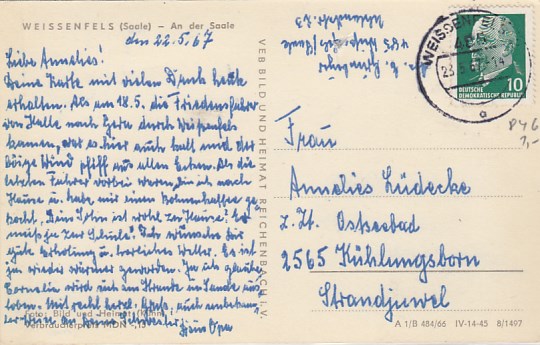 WEISSENFELS (Saale) – An der Saale
den 22.5.67
Liebe Annelies!
Deine Karte mit vielen Dank heute
erhalten. Als am 18.5. die Friedensfahrer
von Halle nach Gera durch Weißenfels
kamen, war es hier auch kalt und der
böige Wind pfiff aus allen Ecken. Als die
letzten Fahrer vorbei waren, bin ich nach
Hause u. habe mir einen Bohnenkaffee ge-
kocht. Dein Sohn ist wohl zu Hause? Er
muß zur Schule! Ich wünsche Dir
gute Erholung u. herrliches Wetter. Es ist
ja wieder wärmer geworden. Ja ich glaube
Cornelia wird sich am Strande im Sande aus-
toben. Mit recht herzl. Grüß. auch unbekannter-
Weise an Deine Schwester
Dein Opa
Foto: Bild und Heimat
Verbraucherpreis MDN -,15
VEB BILD UND HEIMAT REICHENBACH I. V.
485
WEISSENFELS
23.5.67-14
a
10
DEUTSCHE
DEMOKRATISCHE REPUBLIK
P46
1,-
Frau
Annelies Lüdecke
z. Zt. Ostseebad
2565 Kühlungsborn
Strandjuwel
A 1/B 484/66 IV-14-45 8/1407